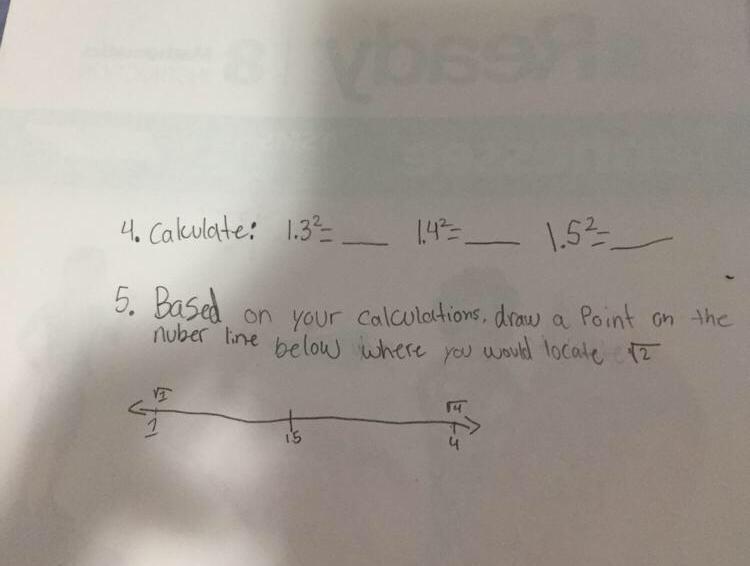 4. Calculate: 1.3²= ___ 1.4²= ___ 1.5²= ___
5. Based on your calculations, draw a Point on the
nuber line below where you would locate √2
√1 √4
1 1.5 4